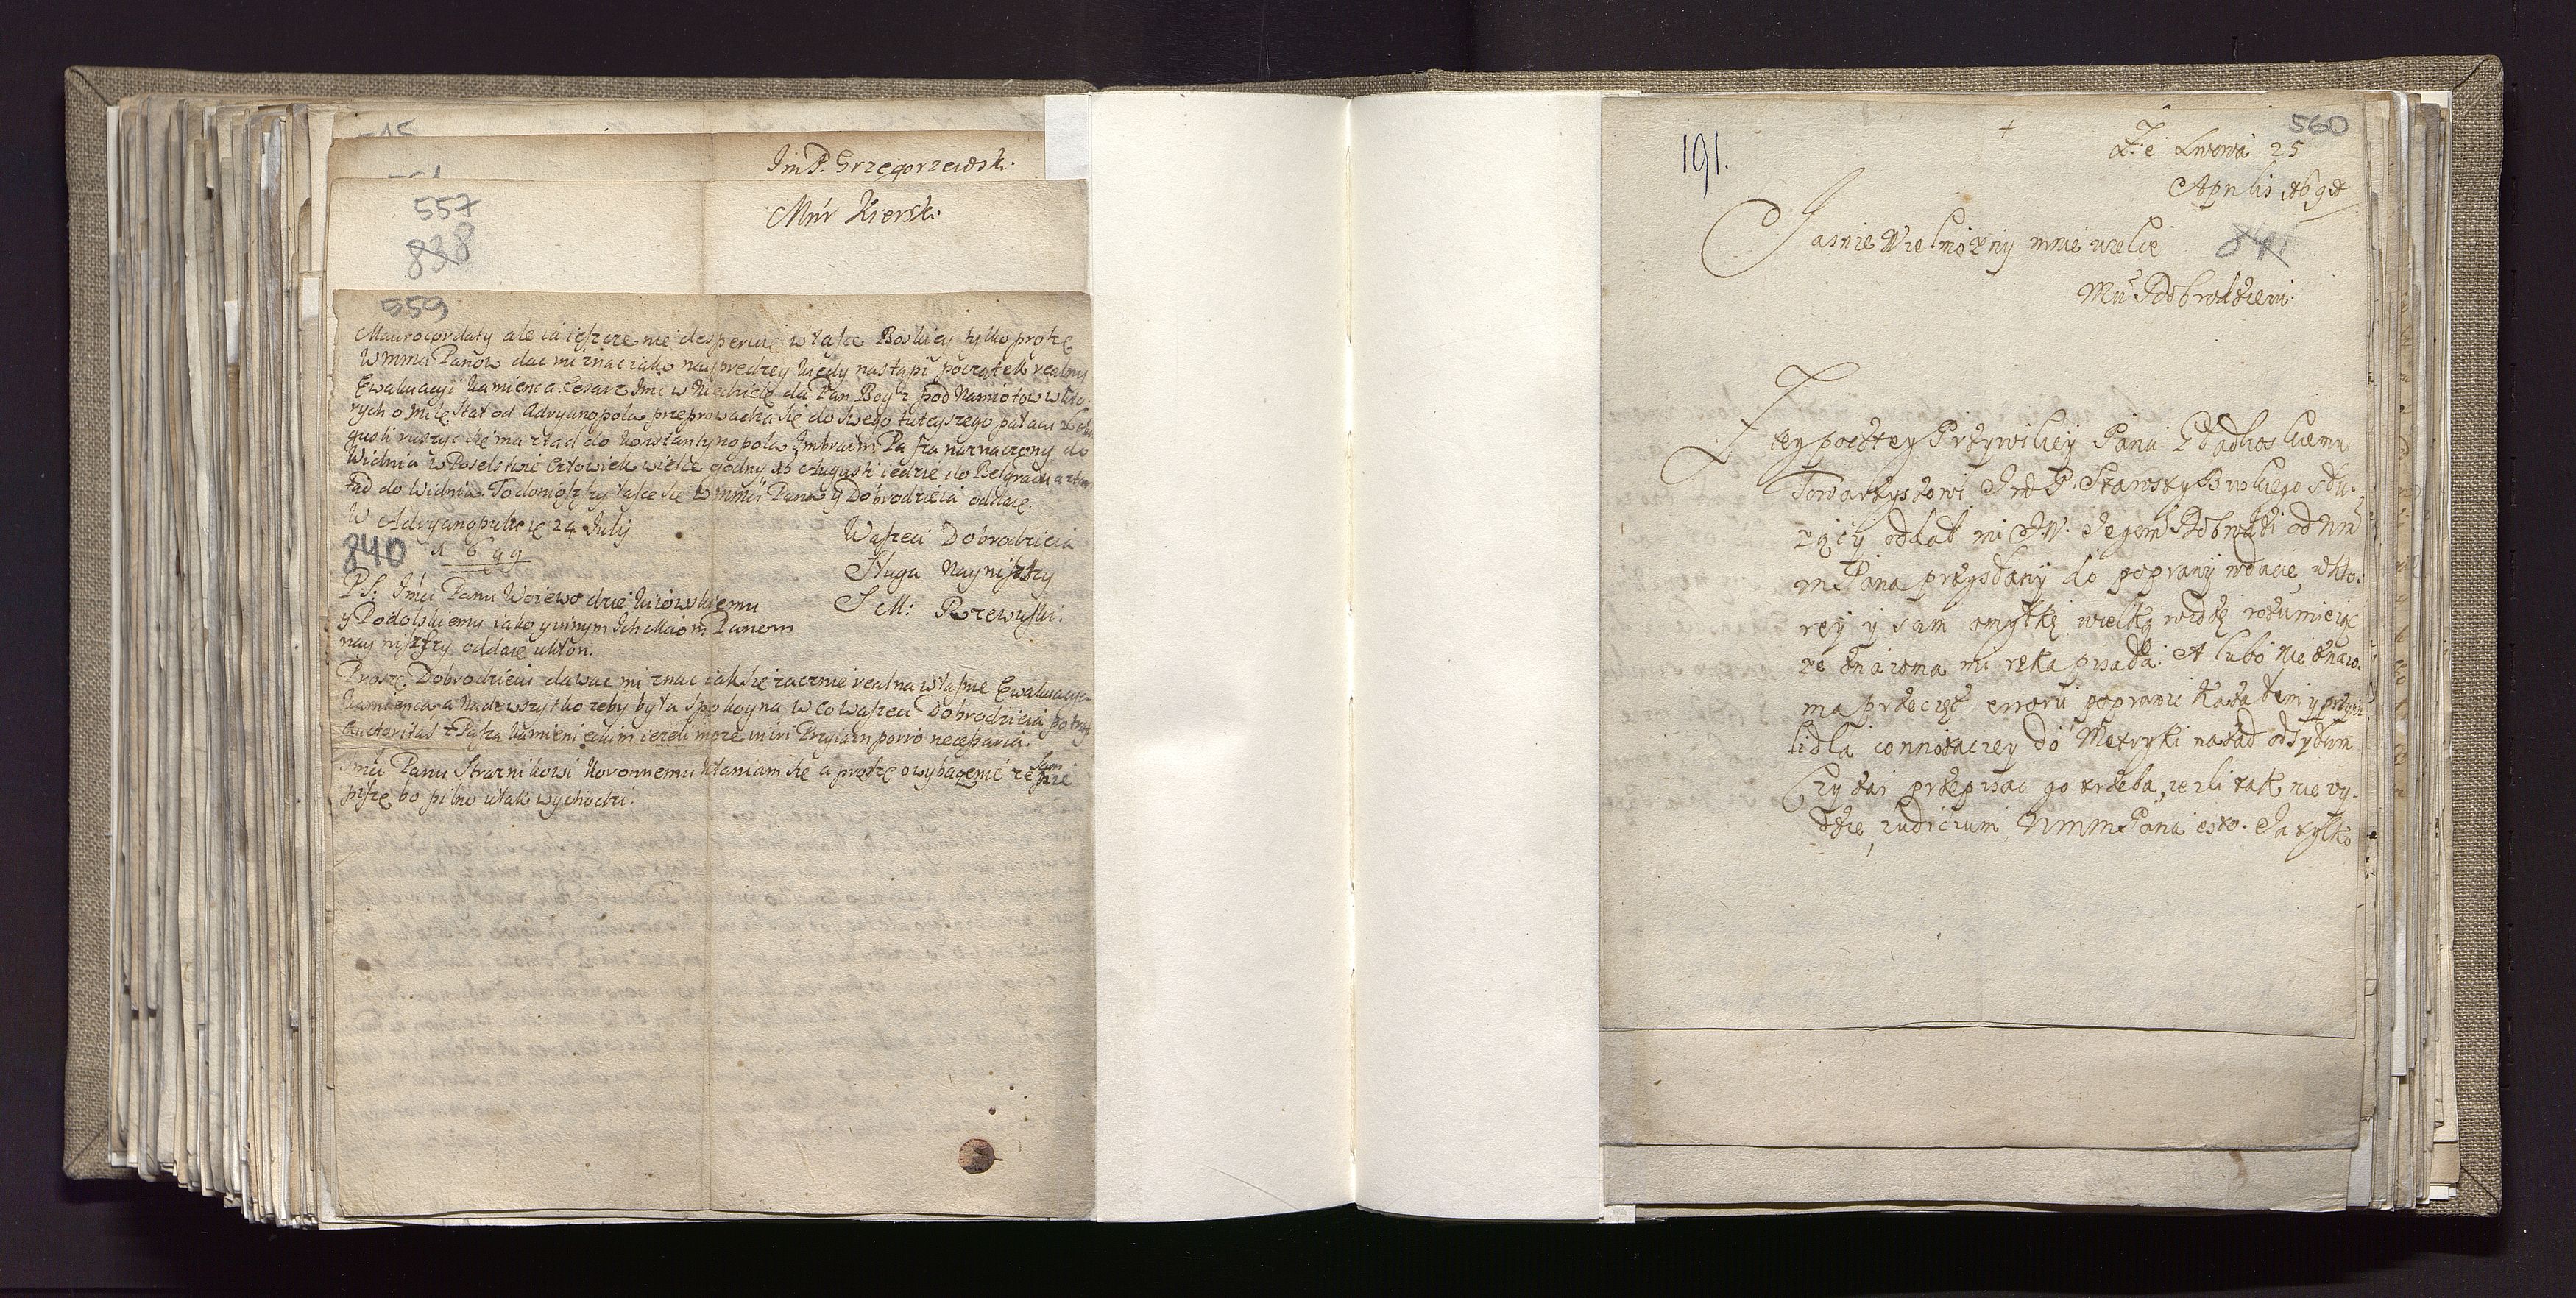 Im P. Grzegorzewsk:
557
Mnr Kiersk:
838
559
Maurocordaty ale ia ieszcze nie desperuię w łasce Boskiey tylko proszę
Wmma Panow dac mi znac iako nayprędzey kiedy nastąpi początek realny
Ewakuacyi Kamienca Cesarz Imć w Niedzielę da Pan Bog z pod Namiotow w kto-
rych o milę stał od Adryanopola przeprowadza się do swego tuteyszego pałacu
gusti ruszyc się ma ztąd do Konstantynopola Imbraim Pasza naznaczony do
Widnia w Poselstwie człowiek wielce godny 15 Augusti iedzie do Belgradu a
tad do Widnia. To doniosszy łasce się Wmmci Pana y Dobrodzieia oddaię.
W Adryanopolu ie 24 Julij
1699
840
Waszeci Dobrodzieia
Sługa Naynizszy
S M: Rzewuski.
PS. Imci Panu Woiewodzie Kiiowskiemu
y Podolskiemu iako y innym Ich Mciom Panom
nay niszszy oddaię ukłon.
Proszę Dobrodzieia dawac mi znac iak się zacznie realna własnie Ewakuacya
Kamienca, a nadewszytko zeby była spokoyna w co Waszeci Dobrodzieia
Auctoritas z Paszą Kamienieckim iezeli moze inire porro necessaria.
Imci Panu Straznikowi Koronnemu kłaniam się a proszę o wybaczenie ze sam nie
piszę bo pilno ułak wychodzi.
560
191.
+
Ze Lwowa 25
Aprilis 169
Jasnie Wielmozny mnie wielce
841
Mci Pdobrodzieiu
Z tey poczty Przywiliey Panu
Towarzyszowi Jmć P. Starosty Buskiego słu-
zący oddał mi J W. Jegomć Pdobrodzi od Wm
m Pana przysłany do poprawy w dacie, w kto-
rey y sam omyłkę wielką widzę rozumieiąc
ze znaioma mi ręka pisała. A lubo nie znaio-
ma przecięz erroru poprawic kazałem y
dla connotacyey do Metryki nazad odsyłam
Czy zas przepisac go trzeba, iezli tak nie uy-
dzie, iudicium Wmm Pana esto. Ja tylko